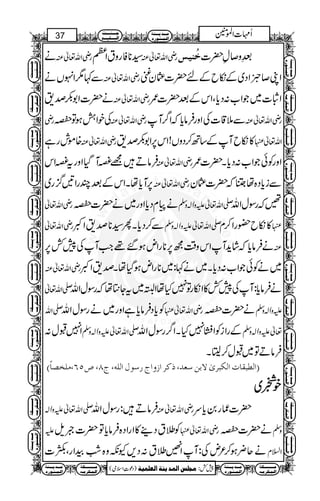 37
اُمہات المؤمنین
بعد وصالِ حضرت خُنیس رضی اللہ تعالیٰ عنہ سیدنا فاروق اعظم رضی اللہ تعالیٰ عنہ نے
اپنی صاحبزادی کے نکاح کے لئے حضرت عثمان غنی رضی اللہ تعالیٰ عنہ سے کہا مگر انہوں نے
اثبات میں جواب نہ دیا، اس کے بعد حضرت عمر رضی اللہ تعالیٰ عنہ نے حضرت ابوبکر صدیق
رضی اللہ تعالیٰ عنہ سے ملاقات کی اور فرمایا کہ اگر آپ رضی اللہ تعالیٰ عنہ کی خواہش ہو تو حفصہ رضی
اللہ تعالیٰ عنہا کا نکاح آپ کے ساتھ کردوں! اس پر ابوبکر صدیق رضی اللہ تعالیٰ عنہ خاموش رہے
اور کوئی جواب نہ دیا۔ حضرت عمر رضی اللہ تعالیٰ عنہ فرماتے ہیں مجھے غصہ آگیا اور یہ غصہ اس
سے زیادہ تھا جتنا کہ حضرت عثمان رضی اللہ تعالیٰ عنہ پر آیا تھا۔ اس کے بعد چند راتیں گزری
تھیں کہ رسول اللہ صلی اللہ تعالیٰ علیہ واٰلہ وسلم نے پیام دیا اور میں نے حضرت حفصہ رضی اللہ تعالیٰ
عنہا کا نکاح حضور اکرم صلی اللہ تعالیٰ علیہ واٰلہ وسلم سے کر دیا۔ پھر سیدنا صدیق اکبر رضی اللہ تعالیٰ
عنہ نے فرمایا کہ شاید آپ اس وقت مجھ پر ناراض ہو گئے تھے جب آپ کی پیش کش پر
میں نے کوئی جواب نہ دیا۔ میں نے کہا: میں ناراض ہو گیا تھا۔ صدیق اکبر رضی اللہ تعالیٰ عنہ
نے فرمایا: آپ کی پیش کش کا انکار تو نہیں کیا تھا البتہ میں یہ جانتا تھا کہ رسول اللہ صلی اللہ تعالیٰ
علیہ واٰلہ وسلم نے حضرت حفصہ رضی اللہ تعالیٰ عنہا کو یاد فرمایا ہے اور میں نے رسول اللہ صلی اللہ
تعالیٰ علیہ واٰلہ وسلم کے راز کو افشا نہیں کیا۔ اگر رسول اللہ صلی اللہ تعالیٰ علیہ واٰلہ وسلم انہیں قبول نہ
فرماتے تو میں قبول کر لیتا۔
(الطبقات الکبریٰ لابن سعد، ذکر ازواج رسول اللہ، ج۸، ص۶۵، ملخصاً)
خوشخبری
حضرت عمار بن یاسر رضی اللہ تعالیٰ عنہ فرماتے ہیں: رسول اللہ صلی اللہ تعالیٰ علیہ واٰلہ
وسلم نے حضرت حفصہ رضی اللہ تعالیٰ عنہا کو طلاق دینے کا ارادہ فرمایا تو حضرت جبریل علیہ
السلام نے حاضر ہو کر عرض کی: آپ انہیں طلاق نہ دیں کیونکہ وہ شب بیدار، بکثرت
پیش کش: مجلس المدینۃ العلمیۃ (دعوتِ اسلامی)